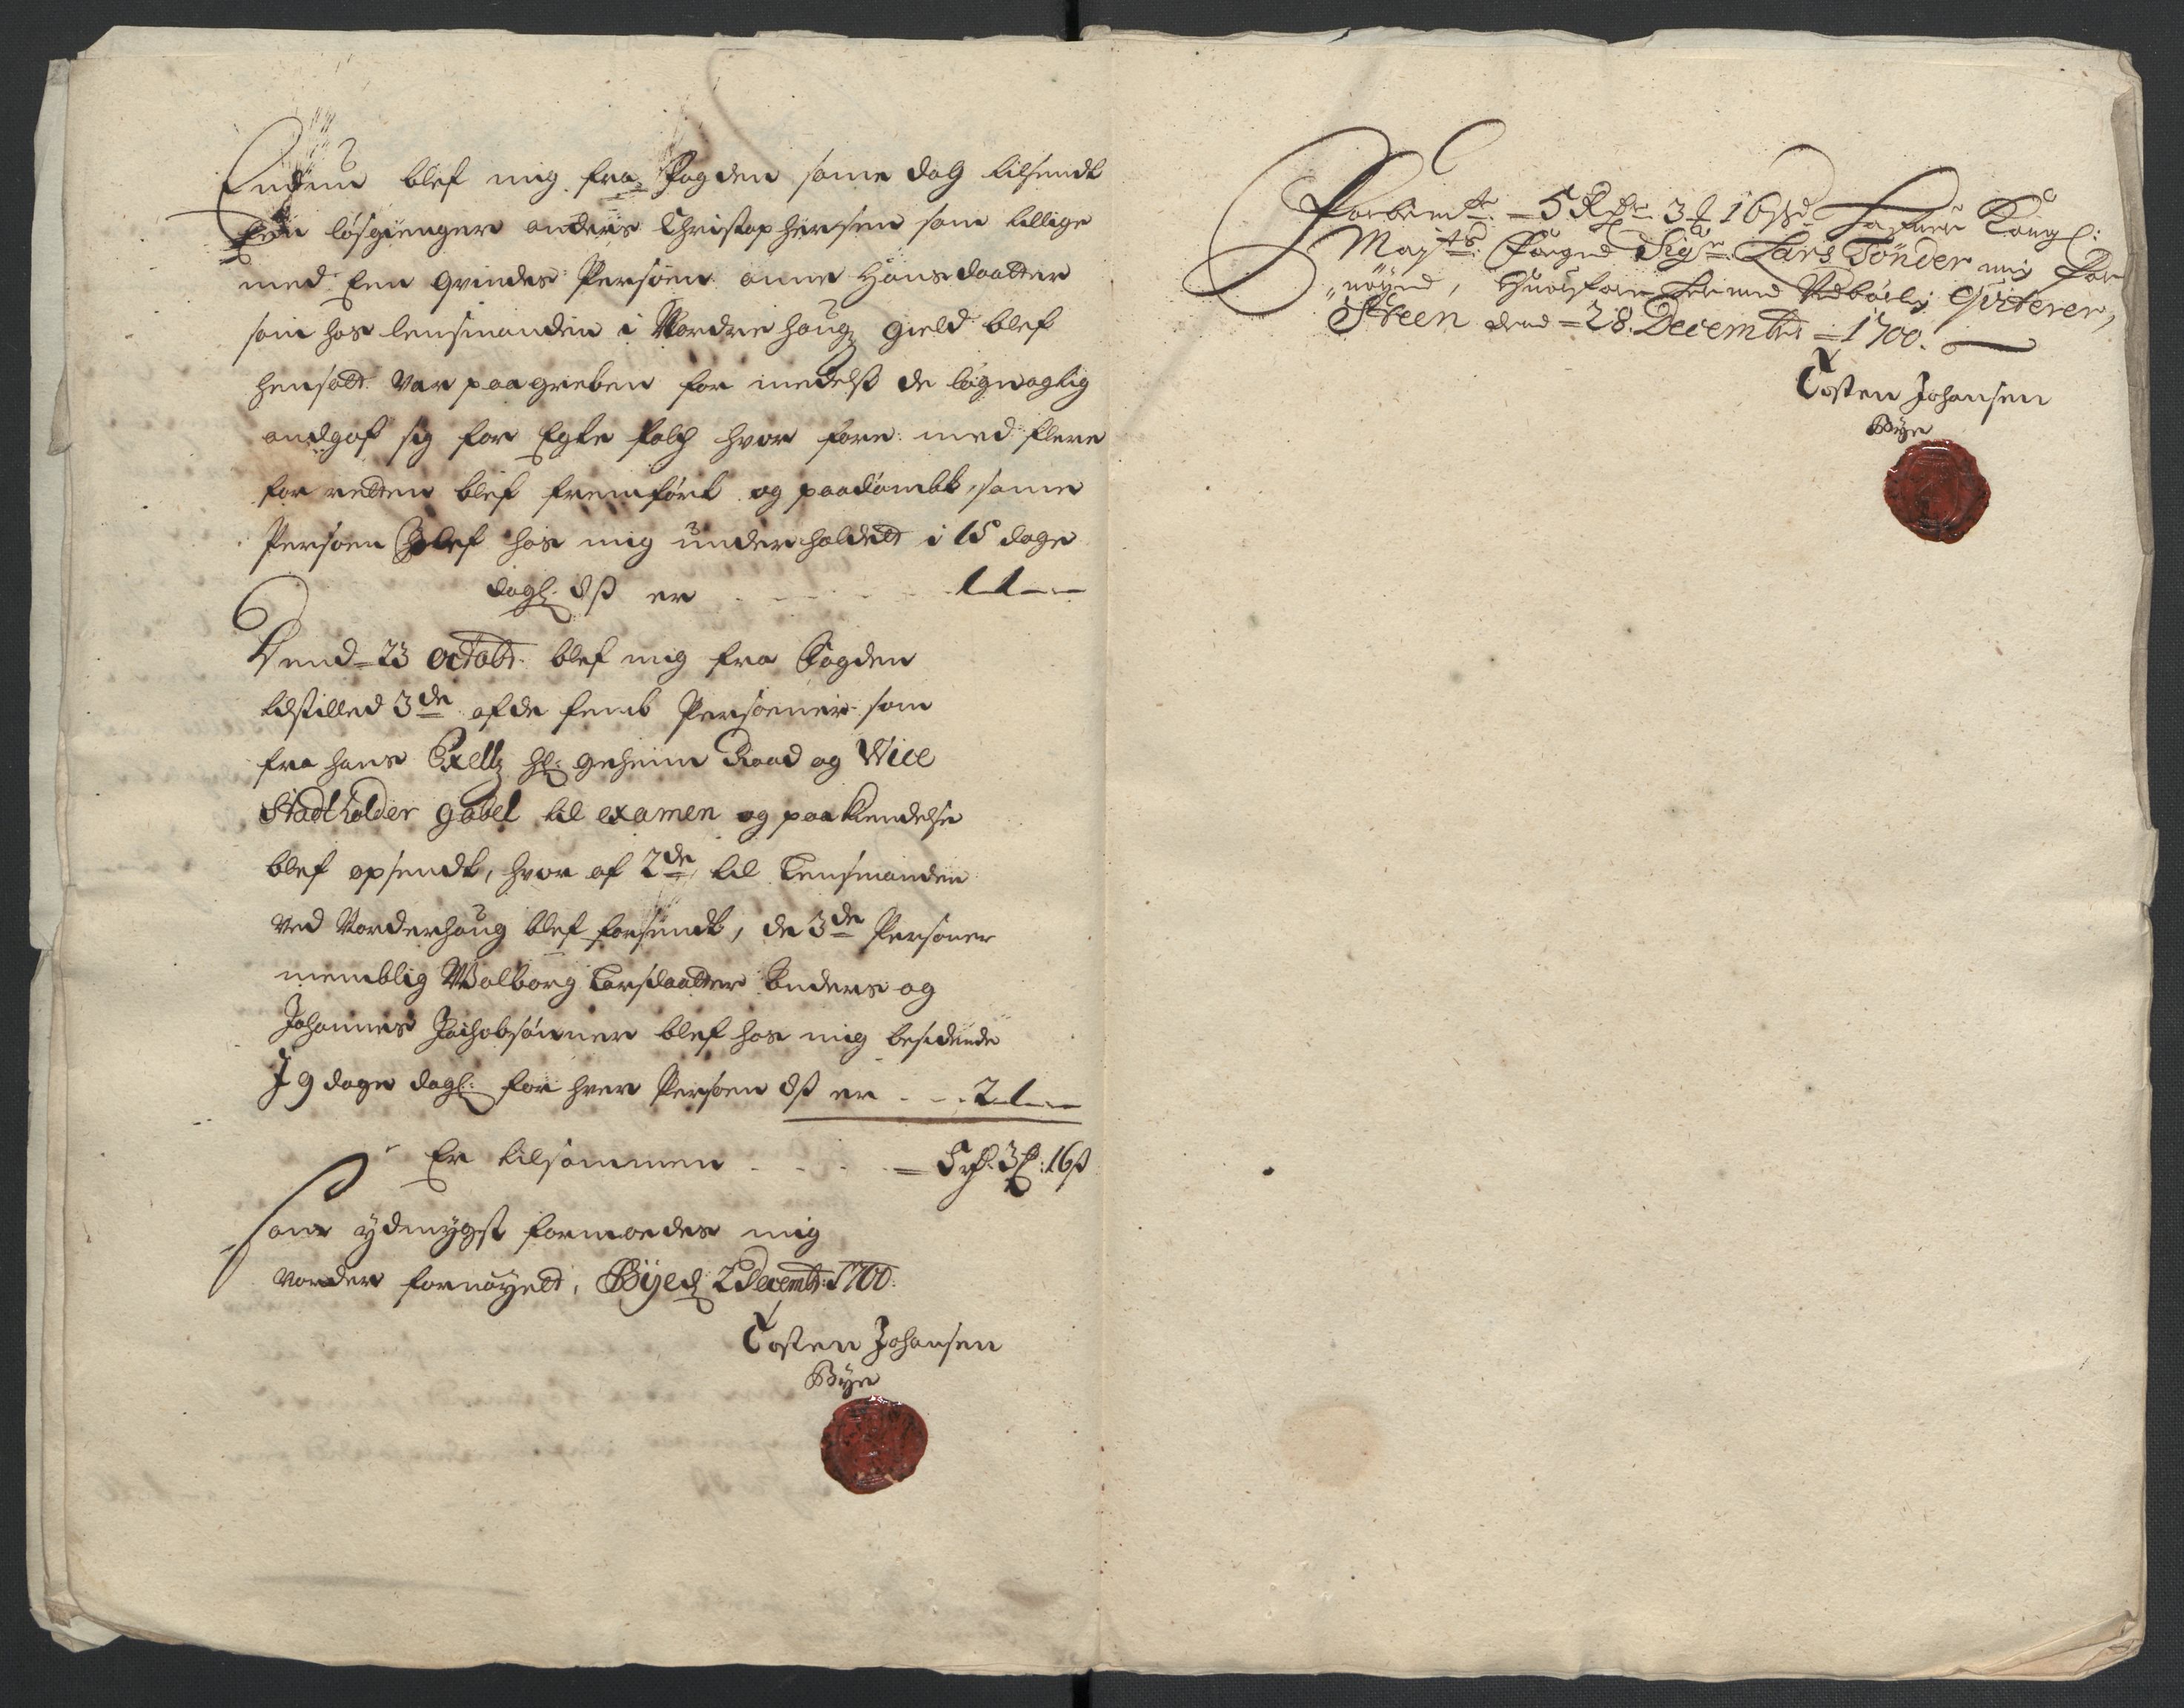 Endnu blef mig fra Fogden same dag tilsendt
Een løsgienger anders Christophersen som tillige
med Een Qvindes Persoen anne Hansdaatter
som hos lensmanden i Nordrehoug gield blef
hensatt var paagreben formedelst de løgnagtig
andgaf sig for Egte folch hvor fore med flere
for retten blef fremført og paadømbt, samme
Persoen blef hos mig underholdett i 15 dage
dagl. 8 ß er - - - - 1 1 -
Dend 23 octobr. blef mig fra Fogden
tilstilled 3de af de femb Persoener som
fra hans Exellz. Hr. geheime Raad og Vice
Stadtholder gabel til examen og paakiendelse
blef opsendt, hvor af 2de til Lensmanden
ved Norderhoug blef forsendt, de 3de Persoener
nemblig Wolborg Larsdaatter Anders og
Johannes Jachobsønner blef hos mig besidende
I 9 dage dagl. for hver Persoen 8 ß er - - 2 1 -
Er tilsammen - - - = 5 rd. 3 ₰: 16 ß
som ydmygst formoedes mig
vorder fornøyett, Bye d. 2 Decembr: 1700.
Tosten Johansen
Bye
Forbemte = 5 Rdr 3 ₰ 16 ß Hafuer Kongl:
Mayts. Foged Sigr. Lars Tønder mig for
nøyed, Huorfore hermed Qviterer,
Steen dend = 28. Decembr = 1700.
Tosten Johansen
Bye